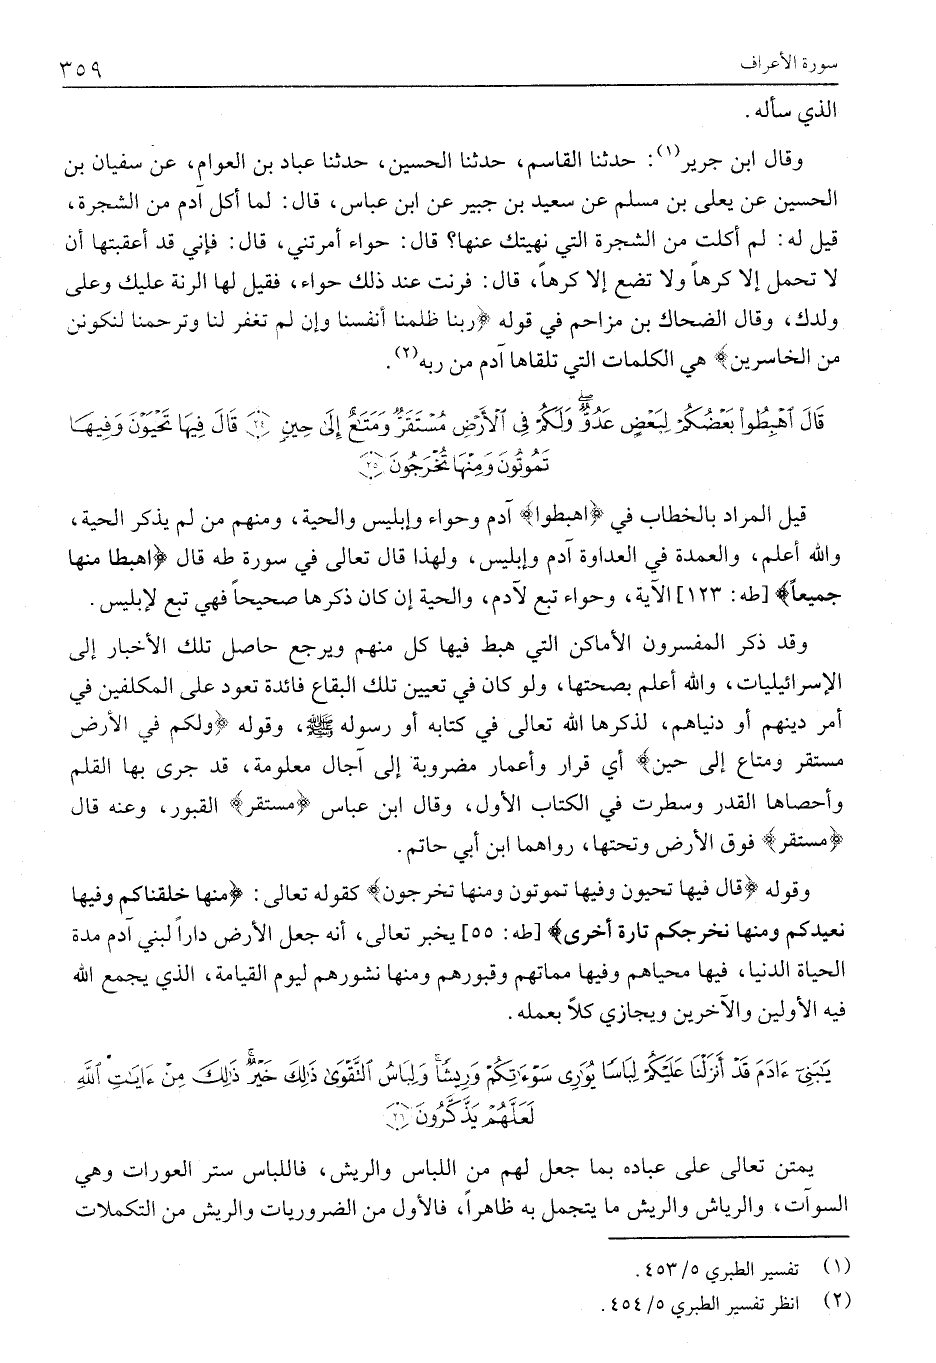 سورة الأعراف ٣٥٩
الذي سأله.
وقال ابن جرير(١): حدثنا القاسم، حدثنا الحسين، حدثنا عباد بن العوام، عن سفيان بن
الحسين عن يعلى بن مسلم عن سعيد بن جبير عن ابن عباس، قال: لما أكل آدم من الشجرة،
قيل له: لم أكلت من الشجرة التي نهيتك عنها؟ قال: حواء أمرتني، قال: فإني قد أعقبتها أن
لا تحمل إلا كرهاً ولا تضع إلا كرهاً، قال: فرنت عند ذلك حواء، فقيل لها الرنة عليك وعلى
ولدك، وقال الضحاك بن مزاحم في قوله ﴿ربنا ظلمنا أنفسنا وإن لم تغفر لنا وترحمنا لنكونن
من الخاسرين﴾ هي الكلمات التي تلقاها آدم من ربه(٢).
قَالَ ٱهۡبِطُواْ بَعۡضُكُمۡ لِبَعۡضٍ عَدُوّٞۖ وَلَكُمۡ فِي ٱلۡأَرۡضِ مُسۡتَقَرّٞ وَمَتَٰعٌ إِلَىٰ حِينٖ ﴿٢٤﴾ قَالَ فِيهَا تَحۡيَوۡنَ وَفِيهَا
تَمُوتُونَ وَمِنۡهَا تُخۡرَجُونَ ﴿٢٥﴾
قيل المراد بالخطاب في ﴿اهبطوا﴾ آدم وحواء وإبليس والحية، ومنهم من لم يذكر الحية،
والله أعلم، والعمدة في العداوة آدم وإبليس، ولهذا قال تعالى في سورة طه قال ﴿اهبطا منها
جميعاً﴾ [طه: ١٢٣] الآية، وحواء تبع لآدم، والحية إن كان ذكرها صحيحاً فهي تبع لإبليس.
وقد ذكر المفسرون الأماكن التي هبط فيها كل منهم ويرجع حاصل تلك الأخبار إلى
الإسرائيليات، والله أعلم بصحتها، ولو كان في تعيين تلك البقاع فائدة تعود على المكلفين في
أمر دينهم أو دنياهم، لذكرها الله تعالى في كتابه أو رسوله ﷺ، وقوله ﴿ولكم في الأرض
مستقر ومتاع إلى حين﴾ أي قرار وأعمار مضروبة إلى آجال معلومة، قد جرى بها القلم
وأحصاها القدر وسطرت في الكتاب الأول، وقال ابن عباس ﴿مستقر﴾ القبور، وعنه قال
﴿مستقر﴾ فوق الأرض وتحتها، رواهما ابن أبي حاتم.
وقوله ﴿قال فيها تحيون وفيها تموتون ومنها تخرجون﴾ كقوله تعالى: ﴿منها خلقناكم وفيها
نعيدكم ومنها نخرجكم تارة أخرى﴾ [طه: ٥٥] يخبر تعالى، أنه جعل الأرض داراً لبني آدم مدة
الحياة الدنيا، فيها محياهم وفيها مماتهم وقبورهم ومنها نشورهم ليوم القيامة، الذي يجمع الله
فيه الأولين والآخرين ويجازي كلاً بعمله.
يَٰبَنِيٓ ءَادَمَ قَدۡ أَنزَلۡنَا عَلَيۡكُمۡ لِبَاسٗا يُوَٰرِي سَوۡءَٰتِكُمۡ وَرِيشٗاۖ وَلِبَاسُ ٱلتَّقۡوَىٰ ذَٰلِكَ خَيۡرٞۚ ذَٰلِكَ مِنۡ ءَايَٰتِ ٱللَّهِ
لَعَلَّهُمۡ يَذَّكَّرُونَ ﴿٢٦﴾
يمتن تعالى على عباده بما جعل لهم من اللباس والريش، فاللباس ستر العورات وهي
السوآت، والرياش والريش ما يتجمل به ظاهراً، فالأول من الضروريات والريش من التكملات
(١) تفسير الطبري ٥/ ٤٥٣.
(٢) انظر تفسير الطبري ٥/ ٤٥٤.